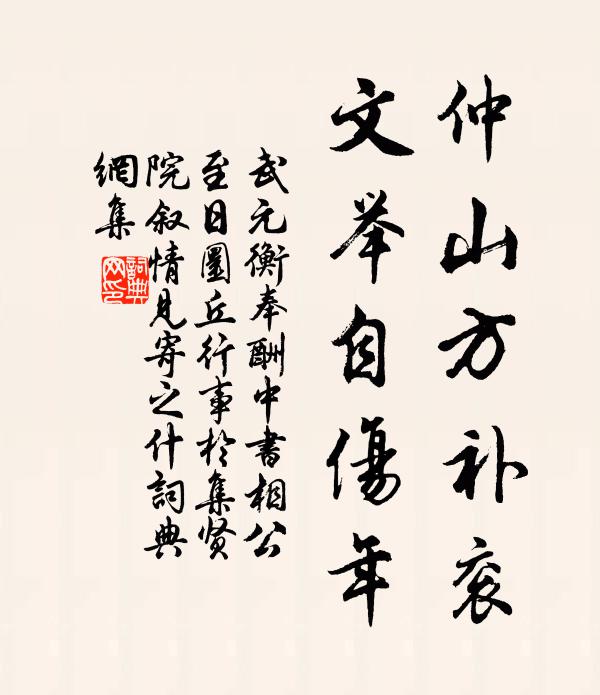 仲山方补衮
文举自傷年
武元衡奉酬中書相公
至日圜丘行事於集贤
院叙情見寄之什詞典
網集
詞典
网印